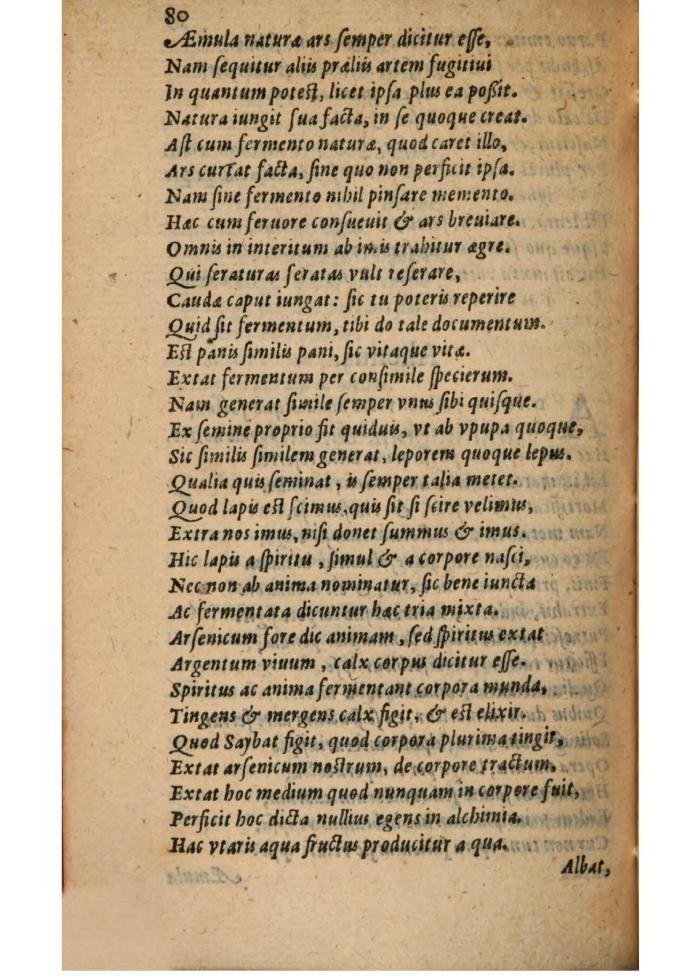 80
Æmula naturæ ars ſemper dicitur eſſe,
Nam ſequitur aliis præliis artem fugitiui
In quantum poteſt, licet ipſa plus ea poßit.
Natura iungit ſua facta, in ſe quoque creat.
Aſt cum fermento naturæ, quod caret illo,
Ars curtat facta, ſine quo non perficit ipſa.
Nam ſine fermento nihil pinſare memento.
Hæc cum feruore conſueuit & ars breuiare.
Omnis in interitum ab imis trahitur ægre.
Qui ſeraturas ſeratas vult reſerare,
Caudæ caput iungat: ſic tu poteris reperire
Quid ſit fermentum, tibi do tale documentum.
Eſt panis ſimilis pani, ſic vitaque vitæ.
Extat fermentum per conſimile ſpecierum.
Nam generat ſimile ſemper vnus ſibi quiſque.
Ex ſemine proprio fit quiduis, vt ab vpupa quoque,
Sic ſimilis ſimilem generat, leporem quoque lepus.
Qualia quis ſeminat, is ſemper talia metet.
Quod lapis eſt ſcimus, quis ſit ſi ſcire velimus,
Extra nos imus, niſi donet ſummus & imus.
Hic lapis a ſpiritu, ſimul & a corpore naſci,
Nec non ab anima nominatur, ſic bene iuncta
Ac fermentata dicuntur hæc tria mixta.
Arſenicum fore dic animam, ſed ſpiritus extat
Argentum viuum, calx corpus dicitur eſſe.
Spiritus ac anima fermentant corpora munda,
Tingens & mergens calx figit, & eſt elixir.
Quod Saybat figit, quod corpora plurima tingit,
Extat arſenicum noſtrum, de corpore tractum.
Extat hoc medium quod nunquam in corpore fuit,
Perficit hoc dicta nullius egens in alchimia.
Hac vtaris aqua fructus producitur a qua.
Albat,